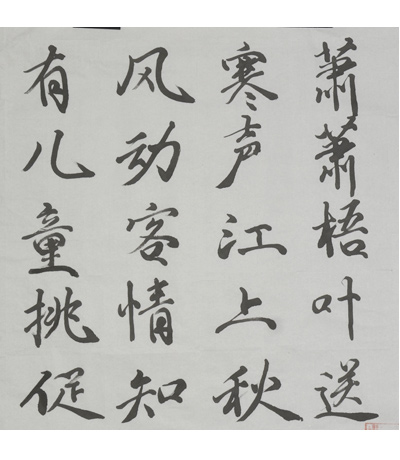 萧萧梧叶送
寒声江上秋
风动客情知
有儿童挑促